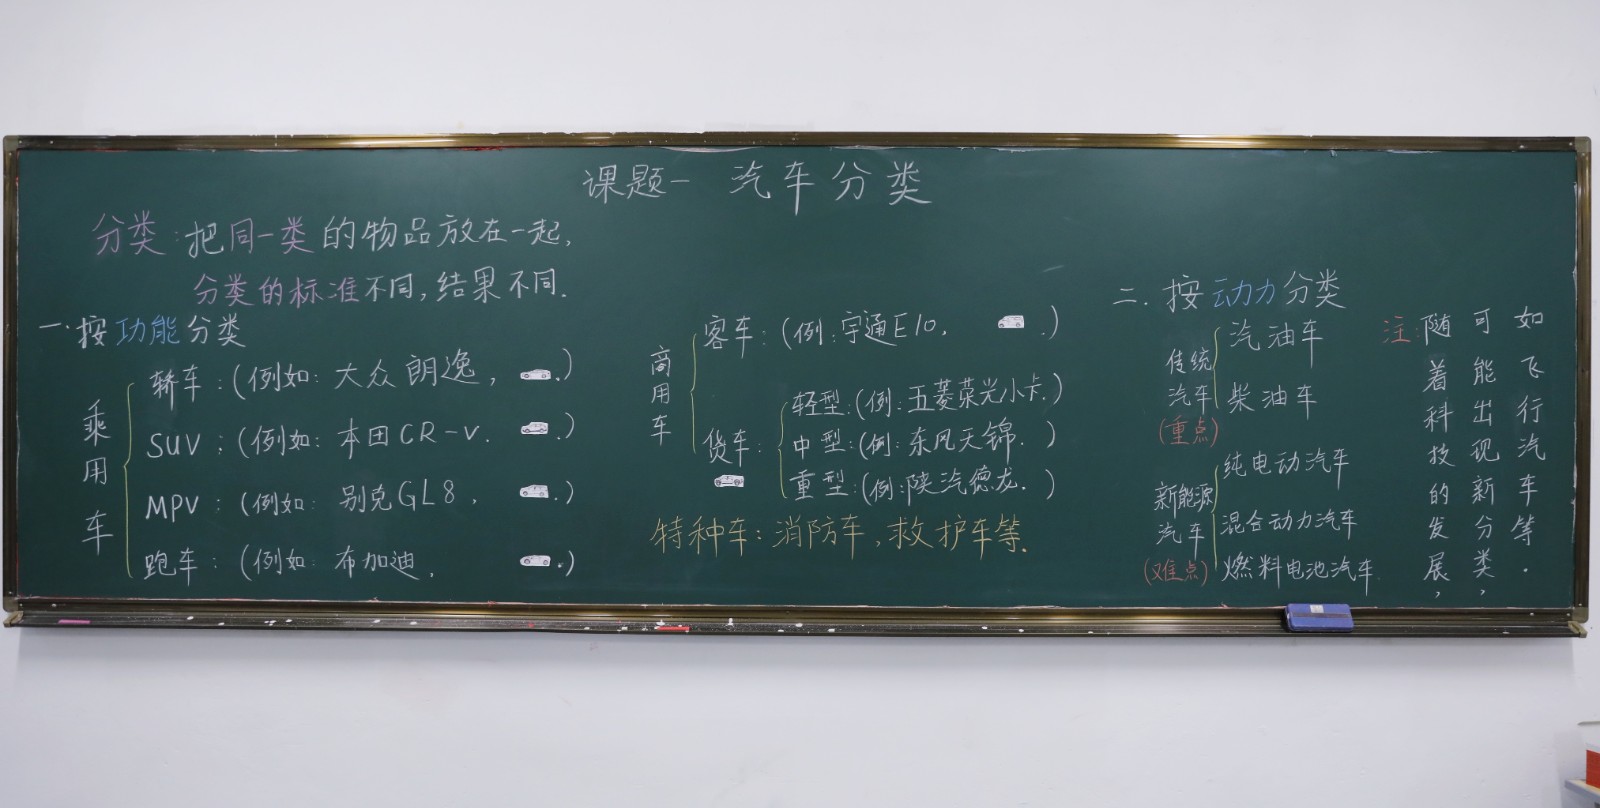 课题一 汽车分类
分类:把同一类的物品放在一起,
分类的标准不同,结果不同.
一.按功能分类
乘用车
轿车:(例如:大众朗逸, .)
SUV:(例如:本田CR-V. .)
MPV:(例如:别克GL8, .)
跑车:(例如:布加迪, .)
商用车
客车:(例:宇通E10, .)
货车:
轻型:(例:五菱荣光小卡.)
中型:(例:东风天锦.)
重型:(例:陕汽德龙.)
特种车:消防车,救护车等.
二.按动力分类
传统汽车
(重点)
汽油车
柴油车
新能源汽车
(难点)
纯电动汽车
混合动力汽车
燃料电池汽车.
注:随着科技的发展,
可能出现新分类,
如飞行汽车等.